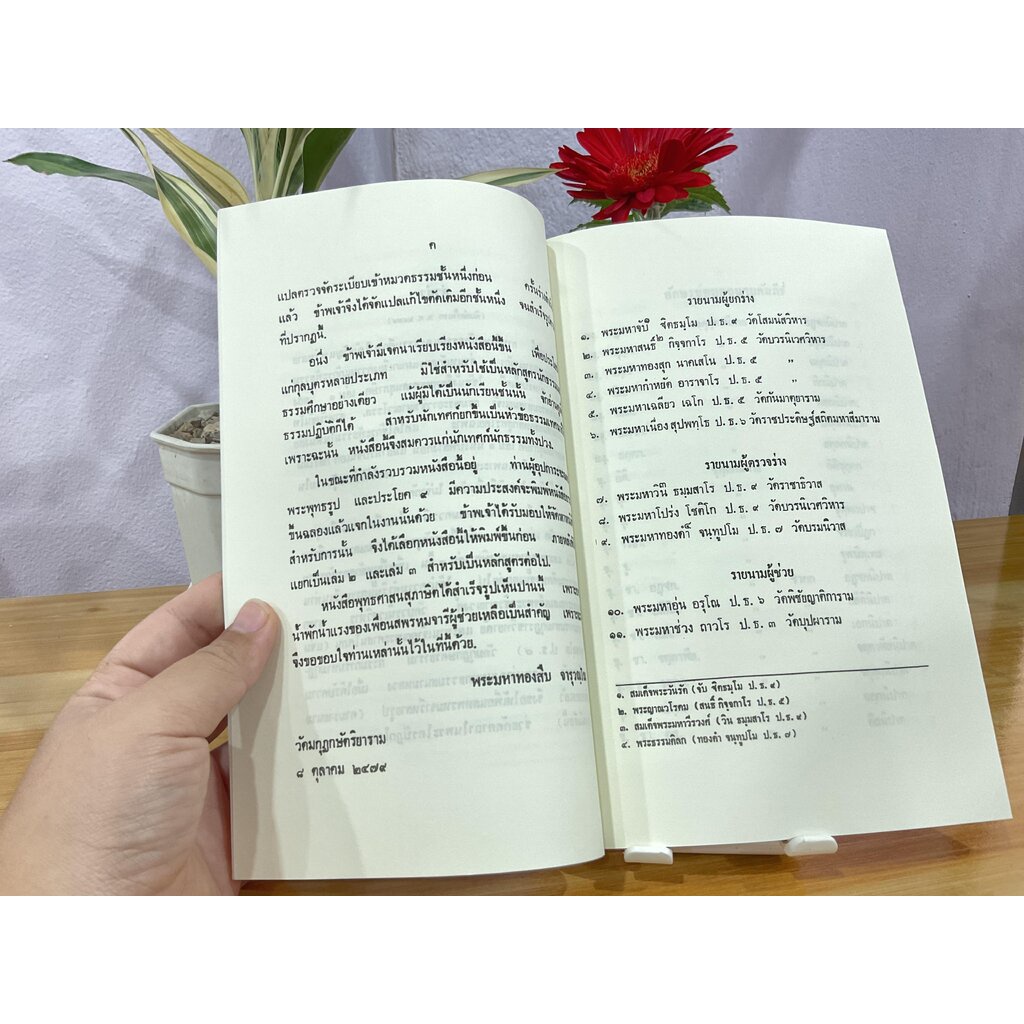 ค
แปลตรวจจัดระเบียบเข้าหมวดธรรมชั้นหนึ่งก่อน
แล้ว ข้าพเจ้าจึงได้จัดแปลแก้ไขตัดเติมอีกชั้นหนึ่ง
ที่ปรากฏนี้
อนึ่ง ข้าพเจ้ามีเจตนาเรียบเรียงหนังสือนี้ขึ้น
แก่กุลบุตรหลายประเภท มิใช่สำหรับใช้เป็นหลักสูตร
ธรรมศึกษาอย่างเดียว แม้ผู้มิได้เป็นนักเรียนชั้นนั้น
ธรรมปฏิบัติก็ได้ สำหรับนักเทศก์ยกขึ้นเป็นหัวข้อธรรม
เพราะฉะนั้น หนังสือนี้จึงสมควรแก่นักเทศก์นักธรรมทั้งปวง.
ในขณะที่กำลังรวบรวมหนังสือนี้อยู่
พระพุทธรูป และประโยค ๙ มีความประสงค์จะพิมพ์
ขึ้นฉลองแล้วแจกในงานนั้นด้วย ข้าพเจ้าได้รับมอบให้
สำหรับการนั้น จึงได้เลือกหนังสือนี้ให้พิมพ์ขึ้นก่อน
แยกเป็นเล่ม ๒ และเล่ม ๓ สำหรับเป็นหลักสูตรต่อไป.
หนังสือพุทธศาสนสุภาษิตได้สำเร็จรูปเห็นปานนี้
น้ำพักน้ำแรงของเพื่อนสพรหมจารีผู้ช่วยเหลือเป็นสำคัญ
จึงขอขอบใจท่านเหล่านั้นไว้ในที่นี้ด้วย.
พระมหาทองสืบ
วัดมกุฏกษัตริยาราม
๘ ตุลาคม ๒๔๗๙
รายนามผู้ยกร่าง
๑. พระมหาจับ๑ ฐิตธมฺโม ป.ธ. ๙ วัดโสมนัสวิหาร
๒. พระมหาสนธิ์๒ กิจฺจกาโร ป.ธ. ๕ วัดบวรนิเวศวิหาร
๓. พระมหาทองสุก นาคเสโน ป.ธ. ๕ ”
๔. พระมหากำหยัด อาราจาโร ป.ธ. ๕ ”
๕. พระมหาเฉลียว เฉโก ป.ธ. ๕ วัดกันมาตุยาราม
๖. พระมหาเนื่อง สุปพทฺโธ ป.ธ. ๖ วัดราชประดิษฐ์สถิตมหาสีมาราม
รายนามผู้ตรวจร่าง
๗. พระมหาวิน๓ ธมฺมสาโร ป.ธ. ๙ วัดราชาธิวาส
๘. พระมหาโปร่ง โชติโก ป.ธ. ๙ วัดบวรนิเวศวิหาร
๙. พระมหาทองคำ๔ จนฺทูปโม ป.ธ. ๗ วัดบรมนิวาส
รายนามผู้ช่วย
๑๐. พระมหาอุ่น อรุโณ ป.ธ. ๖ วัดพิชัยญาติการาม
๑๑. พระมหาช่วง ถาวโร ป.ธ. ๓ วัดบุปผาราม
๑. สมเด็จพระวันรัต (จับ ฐิตธมฺโม ป.ธ. ๙)
๒. พระญาณวโรดม (สนธิ์ กิจฺจกาโร ป.ธ. ๕)
๓. สมเด็จพระมหาวีรวงศ์ (วิน ธมฺมสาโร ป.ธ. ๙)
๔. พระธรรมดิลก (ทองคำ จนฺทูปโม ป.ธ. ๗)